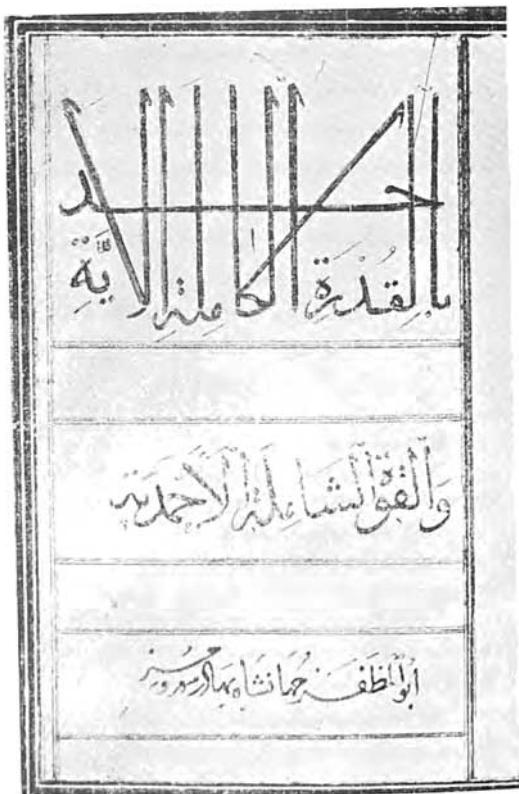 بِالقُدْرَةِ الكَامِلَةِ الاحديَّةِ
وَالقُوَّةِ الشَامِلَةِ الاَحمَدِيَّةِ
ابوالمظفر جهانشاه بهادر سوزومیز